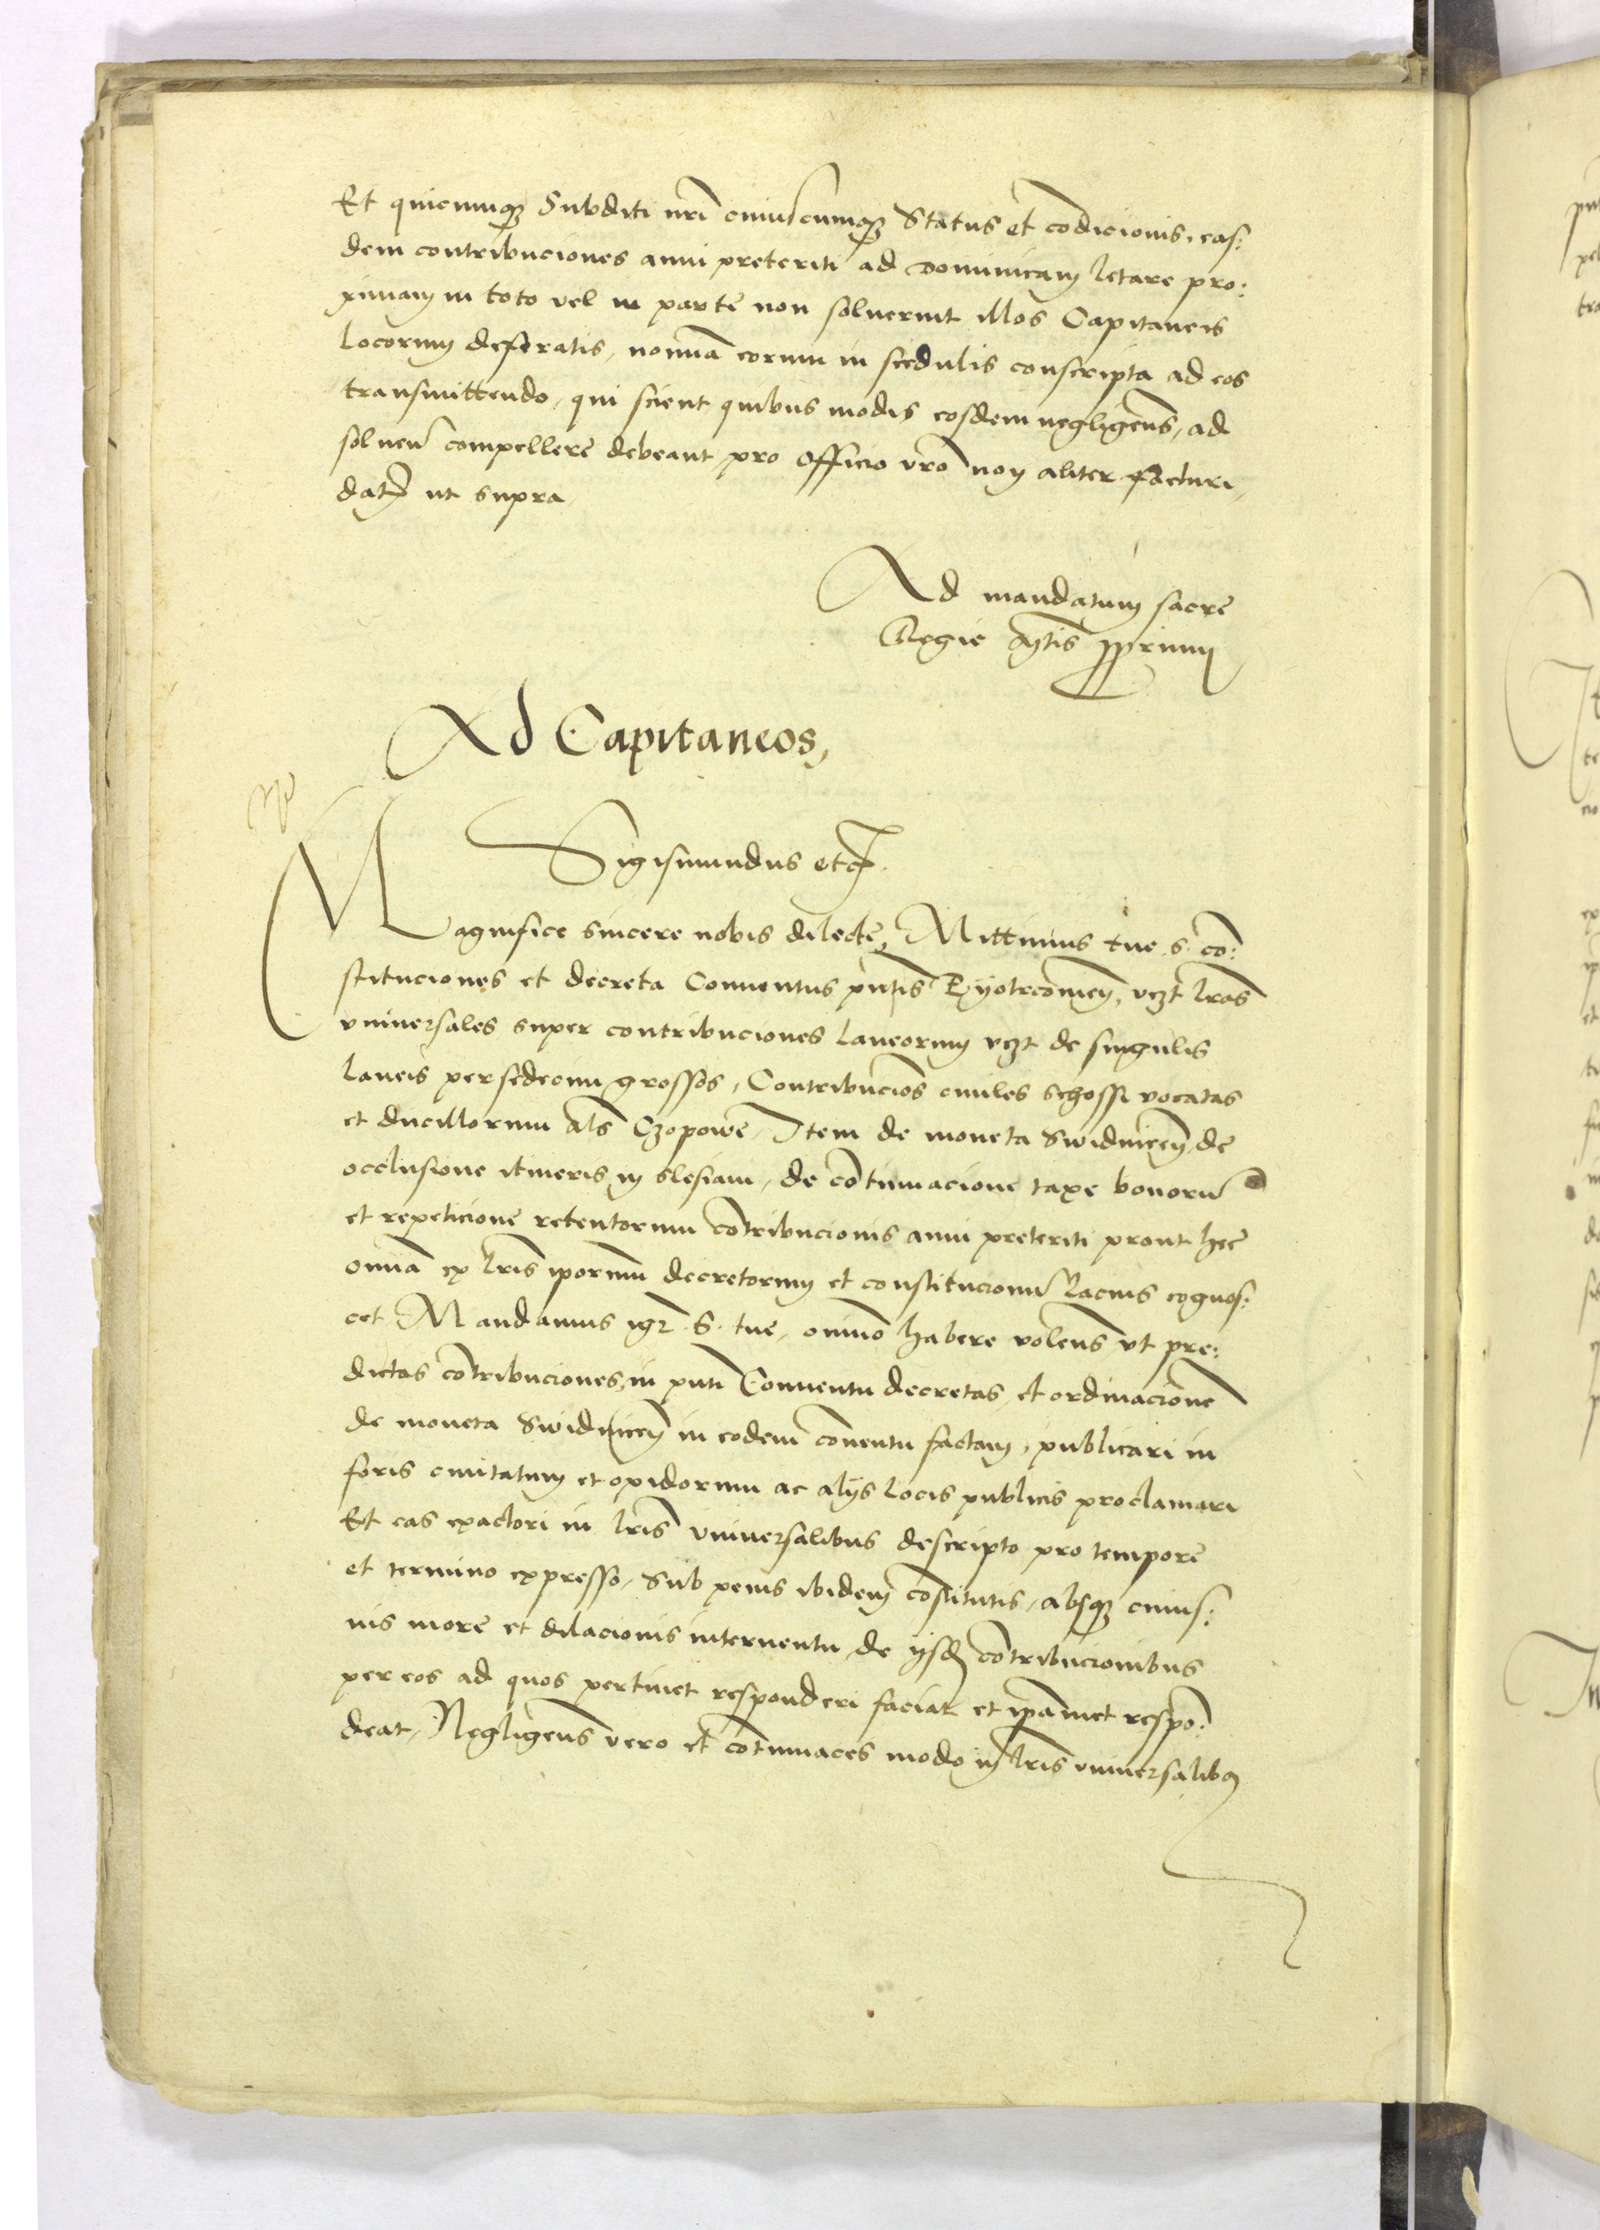 Et quicumq3 Subditi nri cuiuscumq3 Status et codicionis, eas:
dem contribuciones anni preteriti ad dominicam letare pro:
ximam in toto vel in parte non soluerint illos Capitaneis
locorum deferatis, nomina eorum in scedulis conscripta ad eos
transmittendo, qui scient quibus modis eosdem negligens, ad
soluen compellere debeant pro officio vro non aliter facturi,
dat ut supra
Ad mandatum sacre
Regie Mtis pprium
Ad Capitaneos,
Sigismundus etc.
Magnifice sincere nobis dilecte, Mittimus tue s. co:
stituciones et decreta Conuentus pntis Pyotrcouien, vzt lras
vniuersales super contribuciones laneorum vzt de singulis
laneis per sedecim grossos, Contribucios ciuiles schossi vocatas
et ducillorum als Czopowe, Item de moneta Swidnicen, de
occlusione itineris in slesiam, de cotinuacione taxe bonoru
et repeticione retentorum cotribucionis anni preteriti prout hec
omia ex lris iporum decretorum et constitucionu lacius cognos:
cet Mandamus igr S. tue, omnino habere volens vt pre:
dictas cotribuciones, in pnti Conuentu decretas, et ordinacione
de moneta Swidnicen in eodem conentu factam, publicari in
foris ciuitatum et opidorum ac alijs locis publicis proclamari
Et eas exactori in lris vniuersalibus descripto pro tempore
et termino expresso, Sub penis ibidem costitutis, absq3 cuius:
uis more et dilacionis interuentu de ijsd cotribucionibus
per eos ad quos pertinet responderi faciat et ipamet respo:
deat, Negligens vero et cotumaces modo in lris vniuersalib9